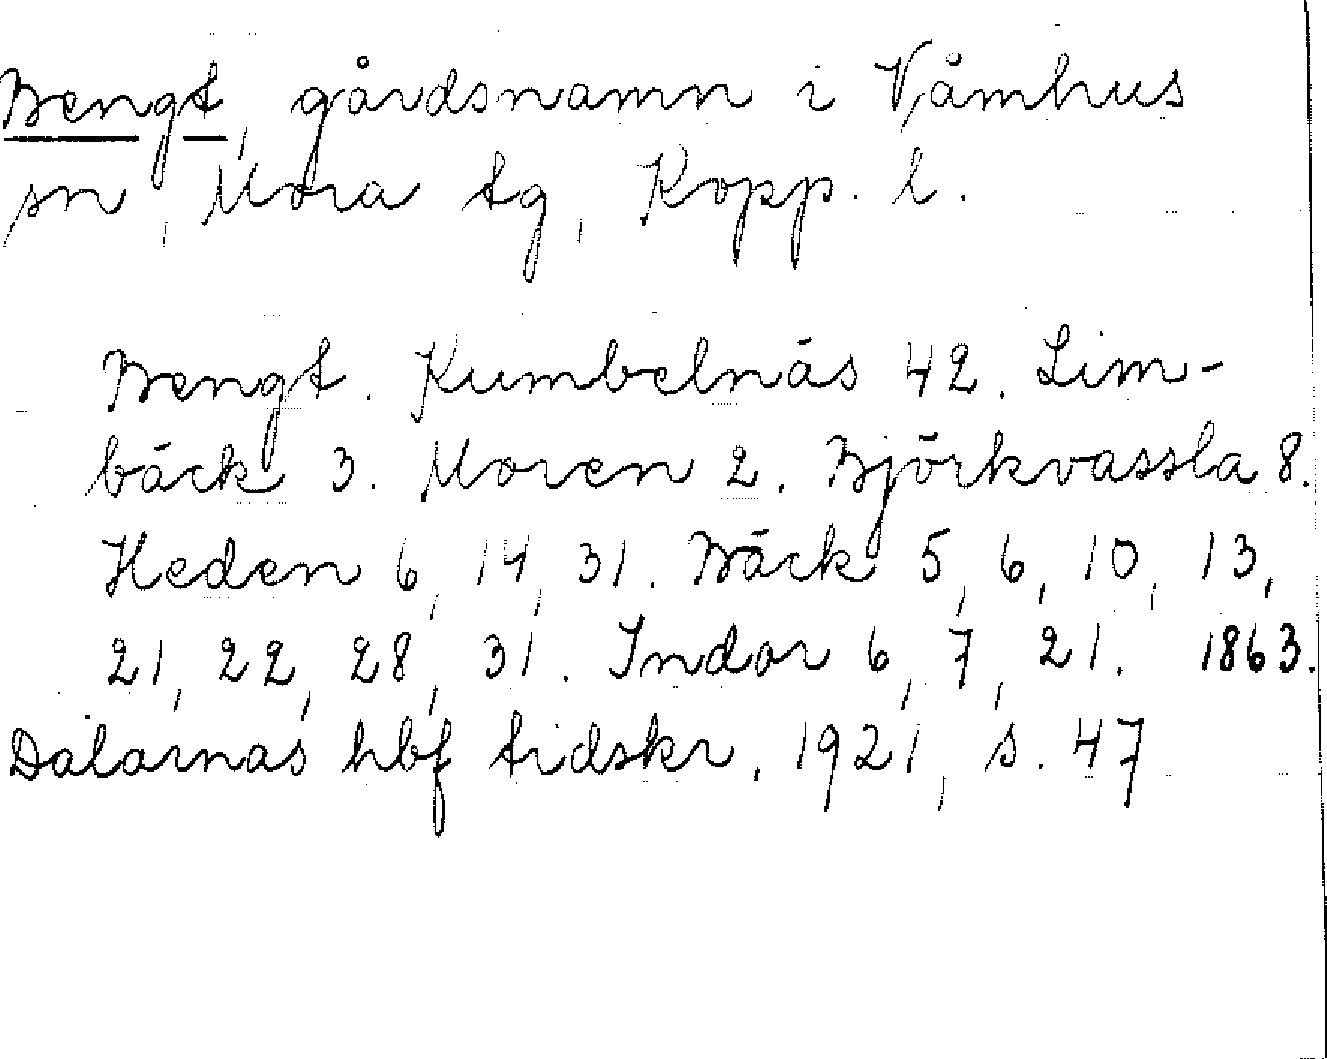 Bengt, gårdsnamn i Våmhus
sn, Mora tg, Kopp. l.
Bengt. Kumbelnäs 42. Lim-
bäck 3. Moren 2. Björkvassla 8.
Heden 6, 14, 31. Bäck 5, 6, 10, 13,
21, 22, 28, 31. Indor 6, 7, 21. 1863.
Dalarnas hbf tidskr. 1921, s. 47